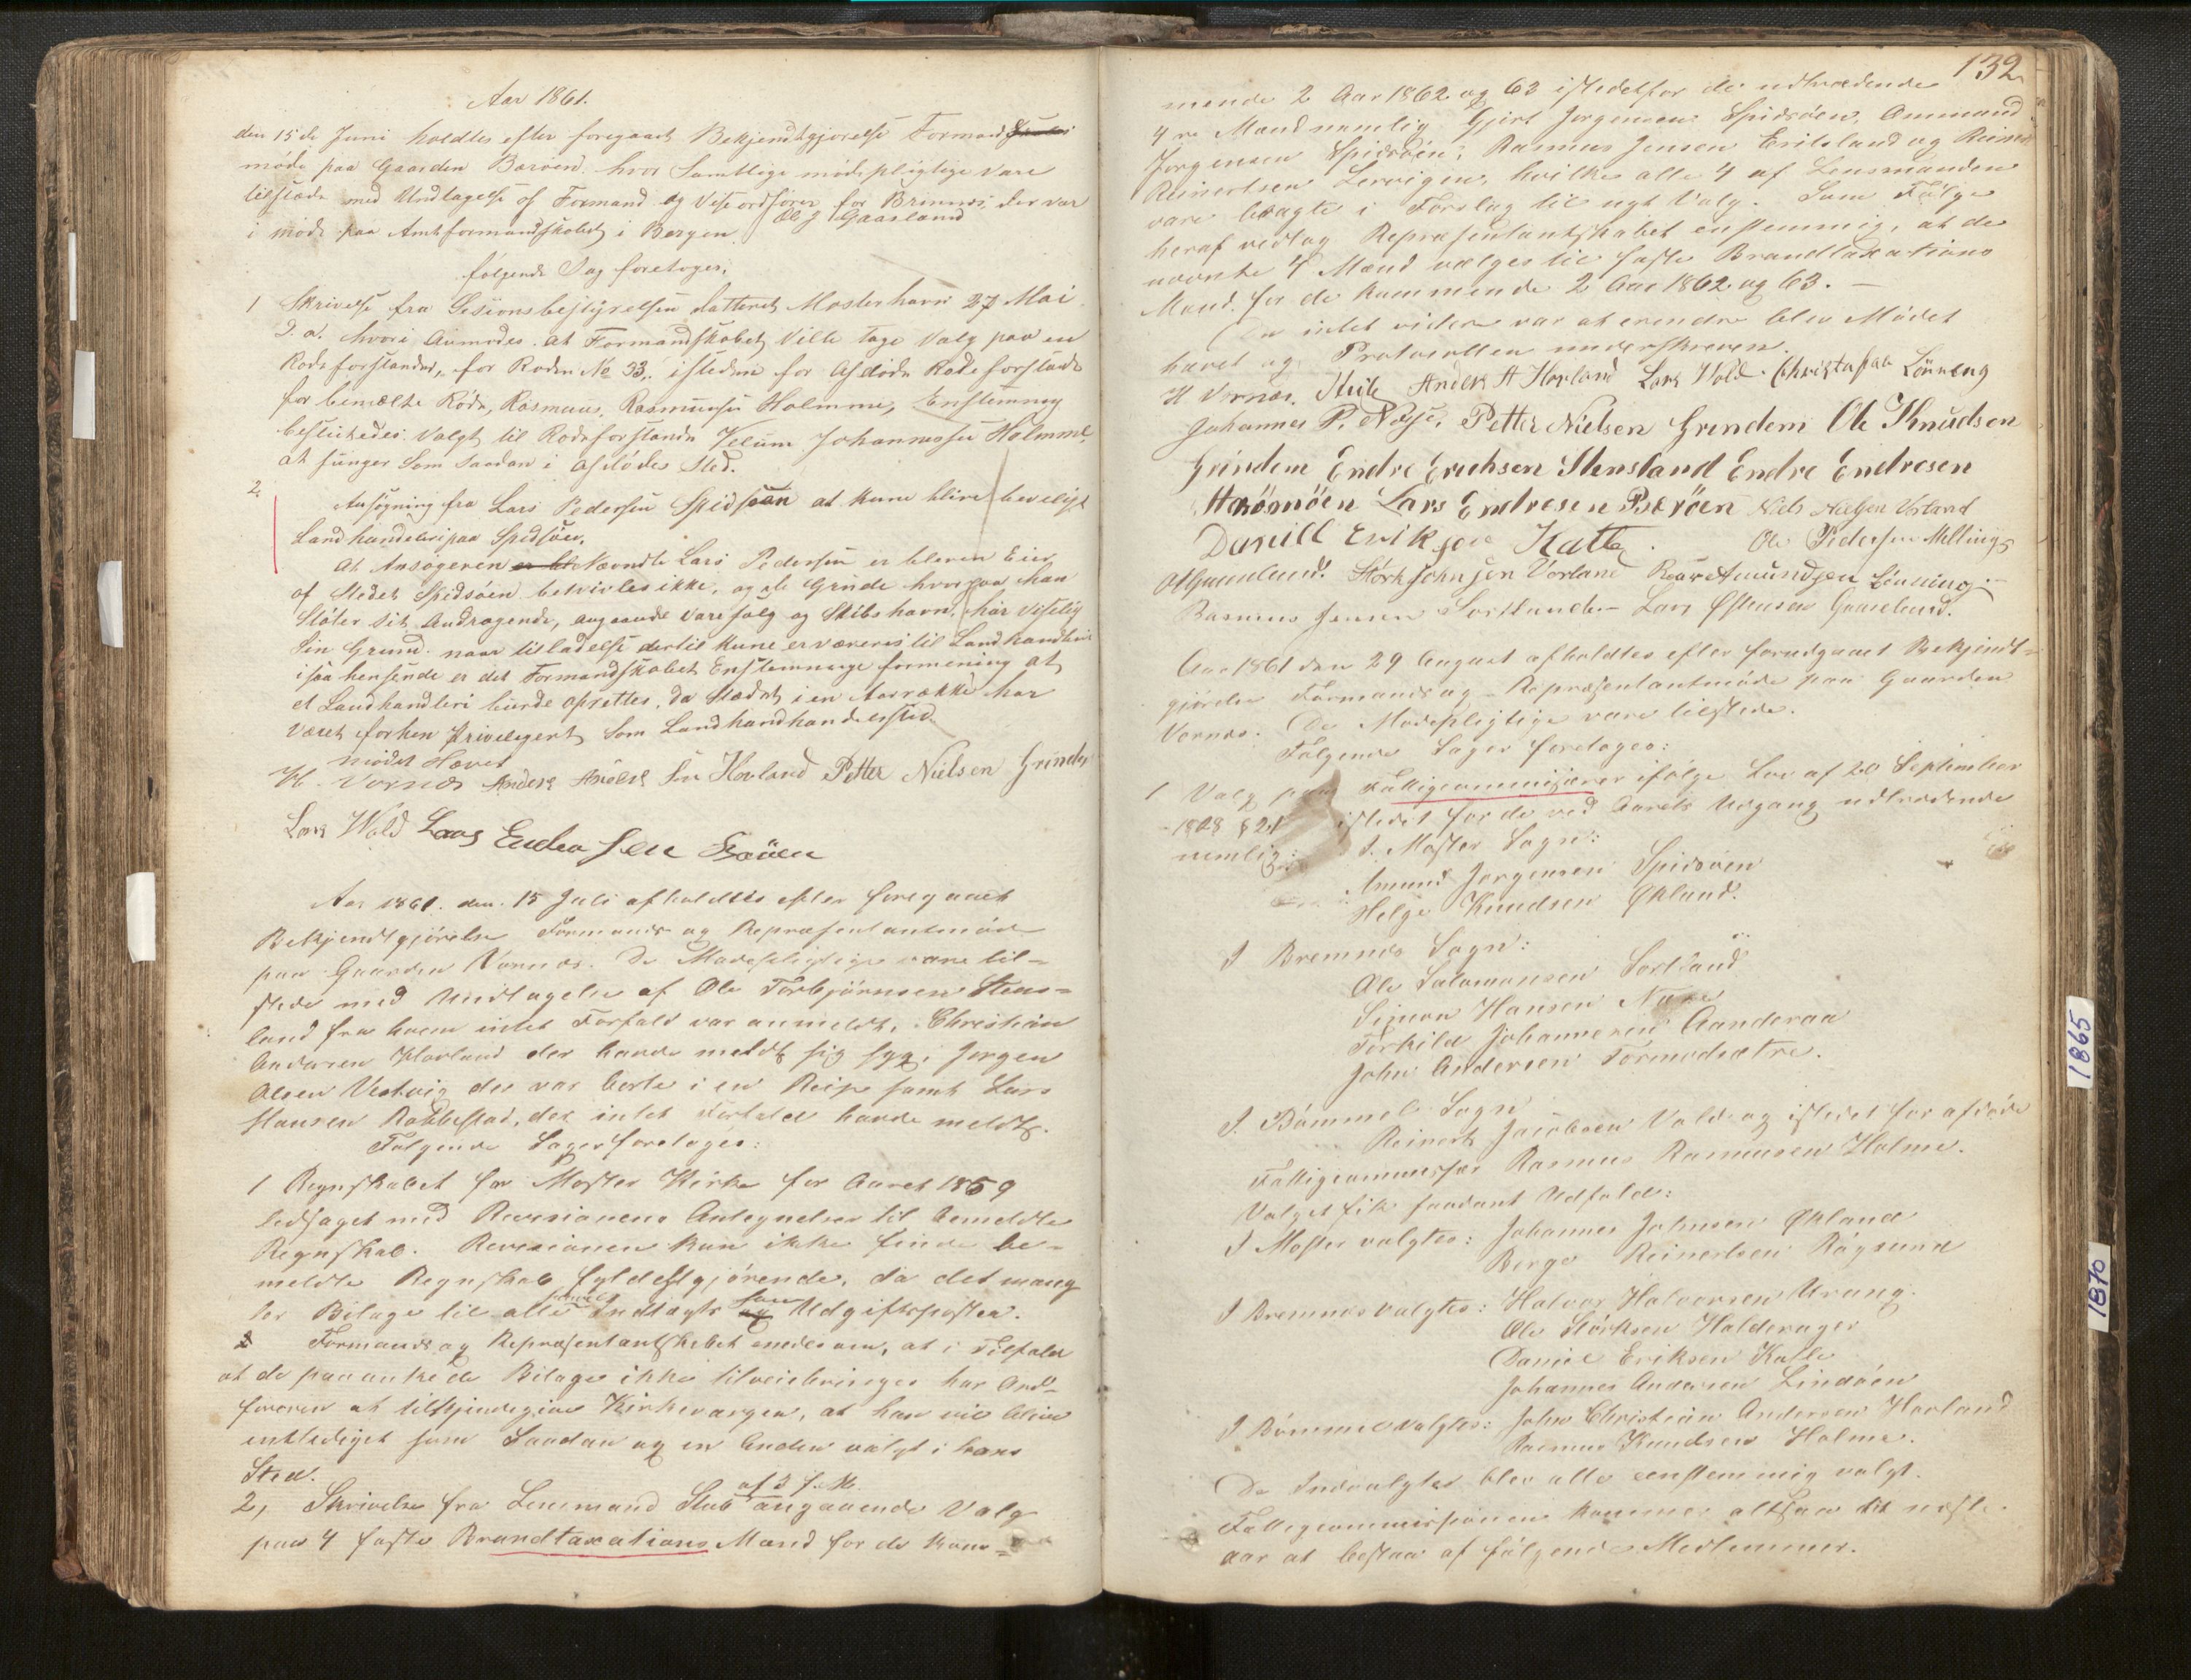 Aar 1861.
den 15de Juni holdtes efter foregaaet Bekjendtgjørelse Formands
møde paa Gaarden Børøen. hvor Samtlige mødepligtige vare
tilstæde med Undtagelse of Formand og Viseordfører for Brinnes, der var
i møde paa Amtformandskabet i Bergen. Ole J Gaasland
følgende Sag foretoges;
1 Skrivelse fra Sesionsbestyrelsen datteret Mosterhavn 27 Mai
d. a. hvori Anmodes at Formandskabet Ville tage Valg paa en
Rodeforstander, for Roden No 33, isteden for Afdøde Rodeforstander
for bemælte Rode, Rasmus Rasmusen Holmme, Enstemmig
besluttedes Valgt til Rodeforstander Johannessen Holmme,
at funger Som saadan i Afdødes Sted.
2. Ansøgning fra Lars Pedersen Spidsøen at kune blive bevilget
Landhandleri paa Spidsøen.
At Ansøgeren er bl Nævndte Lars Pedersen er bleven Eier
af Stedet Spidsøen betvivles ikke, og de Grunde hvorpaa han
Støter sit Andragende, angaaende Varesalg og Skibshavn, har viselig
Sin Grund. naar tilladelse dertil kune erværves til Landhandleri
isaa hensende er det Formandskabet Enstemmige formening at
et Landhandleri burde oprettes, da Stædet i en Aarrække har
Været forhen Privilegert Som Landhandhandlersted.
mødet Hævet
H. Vornæs Anders Anders Sen Hovland Petter Nielsen Grinde
Lars Wold Laas Endresen Børøen
Aar 1861. den 15 Juli afholdtes efter foregaaet
Bekjendtgjørelse Formands og Repræsentantmøde
paa Gaarden Vornæs. De Mødepligtige vare til=
stede med Undtagelse af Ole Torbjørnsen Stens=
land fra hvem intet Forfald var anmeldt, Christian
Andersen Hovland der havde meldt sig syg, Jørgen
Olsen Vestvig der var borte i en Reise samt Lars
Hansen Rabbestad, der intet Forfald havde meldt.
Følgende Sager foretoges:
1 Regnskabet for Moster Kirke for Aaret 1859
ledsaget med Revisionens Antegnelser til bemeldte
Regnskab. Revisionen kan ikke finde be=
meldte Regnskab fyldestgjørende, da det mang
ler Bilage til alle Indtægts og Udgiftsposter.
Formands og Repræsentantskabet enedes om, at i Tilfælde
at de paaankede Bilage ikke tilveiebringes har Ord=
føreren at tilkjendegive Kirkevergen, at han vil blive
entlediget som Saadan og en Anden valgt i hans
Sted.
2, Skrivelse fra Lensmand Stub af 3 f. M. angaaende Valg
paa 4 faste Brandtaxations Mænd for de kom=
132
mende 2 Aar 1862 og 63 istedetfor de udtrædende
4re Mænd nemlig Gjert Jørgensen Spidsøen, Ammund
Jørgensen Spidsøen, Rasmus Jensen Eritsland og Reinert
Reinertsen Lervigen, hvilke alle 4 af Lensmanden
vare bragte i Forslag til nyt Valg. Som Følge
heraf vedtog Repræsentantskabet enstemmig, at de
nævnte 4 Mænd vælges til faste Brandtaxations
Mænd for de kommende 2 Aar 1862 og 63. —
Da intet videre var at erendre blev Mødet
hævet og Protocollen underskreven.
H Vornæs. Stub Anders A Hovland Lars Wold Christafar Lønning
Johannes P. Nøsse, Petter Nielsen Grindem Ole Knudsen
Grindem Endre Erichsen Stensland Endre Endresen
Lars Endresen Børøen Niels Vorland
Daniell Eriksen Katle. Ole Pedersen Mellings
Størk Johnsen Vorland Amundsen Lønning.
Rasmus Jensen Sortlande Lars Østensen Gaaseland.
Aar 1861 den 29 August afholdtes efter forudgaaet Bekjendt=
gjørelse Formands og Repræsentantmøde paa Gaarden
Vornæs. De Mødepligtige vare tilstede.
Følgende Sager foretoges:
1 Valg paa Fattigcommisærer ifølge Lov af 20 September
1828 § 21 istedet for de ved Aarets Udgang udtrædende
nemlig: I Moster Sogn:
Amund Jørgensen Spidsøen
Helge Knudsen Økland.
I Bremnes Sogn:
Ole Salamonsen Sortland
Simon Hansen
Torkild Johannesen Aanderaa
John Andersen Tormodsætre.
I. Bømmel Sogn
Reinert Jacobsen Vold og istedet for afdøde
Fattigcommissær Rasmus Rasmusen Holme.
Valget fik saadant Udfald:
I Moster valgtes: Johannes Johnsen Økland
Berge Reinertsen Røgsund
I Bremnes valgtes: Halvor Halvorsen Urang.
Ole Størksen Halderager
Daniel Eriksen Katle
Johannes Andersen Lindøen
I Bømmel valgtes: John Christian Andersen Hovland
Rasmus Knudsen Holme.
De Indvalgte blev alle eenstemmig valgt.
Fattigcommissionen kommer altsaa til næste
aar at bestaa af følgende Medlemmer.
1865
1870